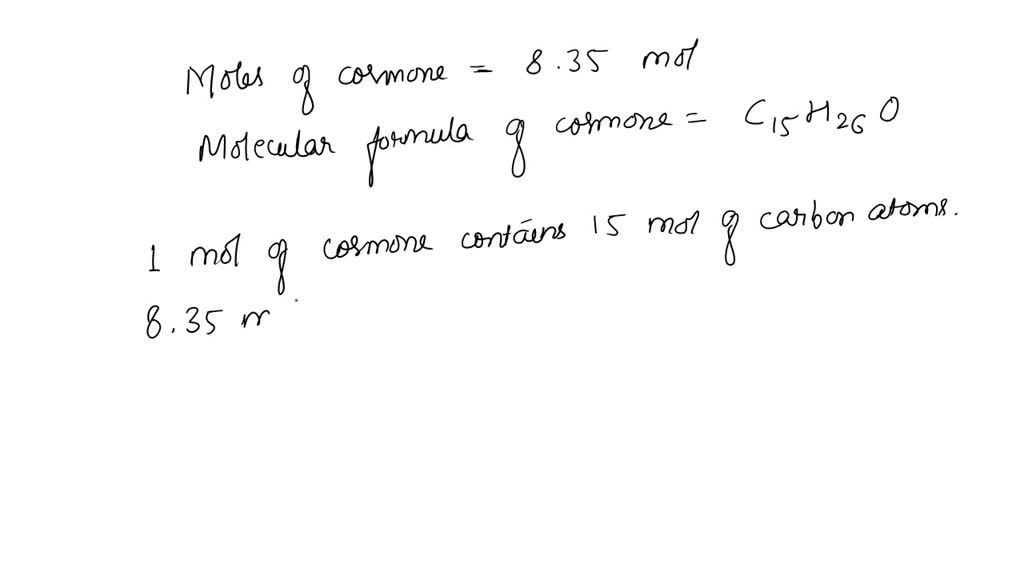 Moles of cosmone = 8.35 mol
Molecular formula of cosmone = C15H26O
1 mol of cosmone contains 15 mol of carbon atoms.
8.35 m